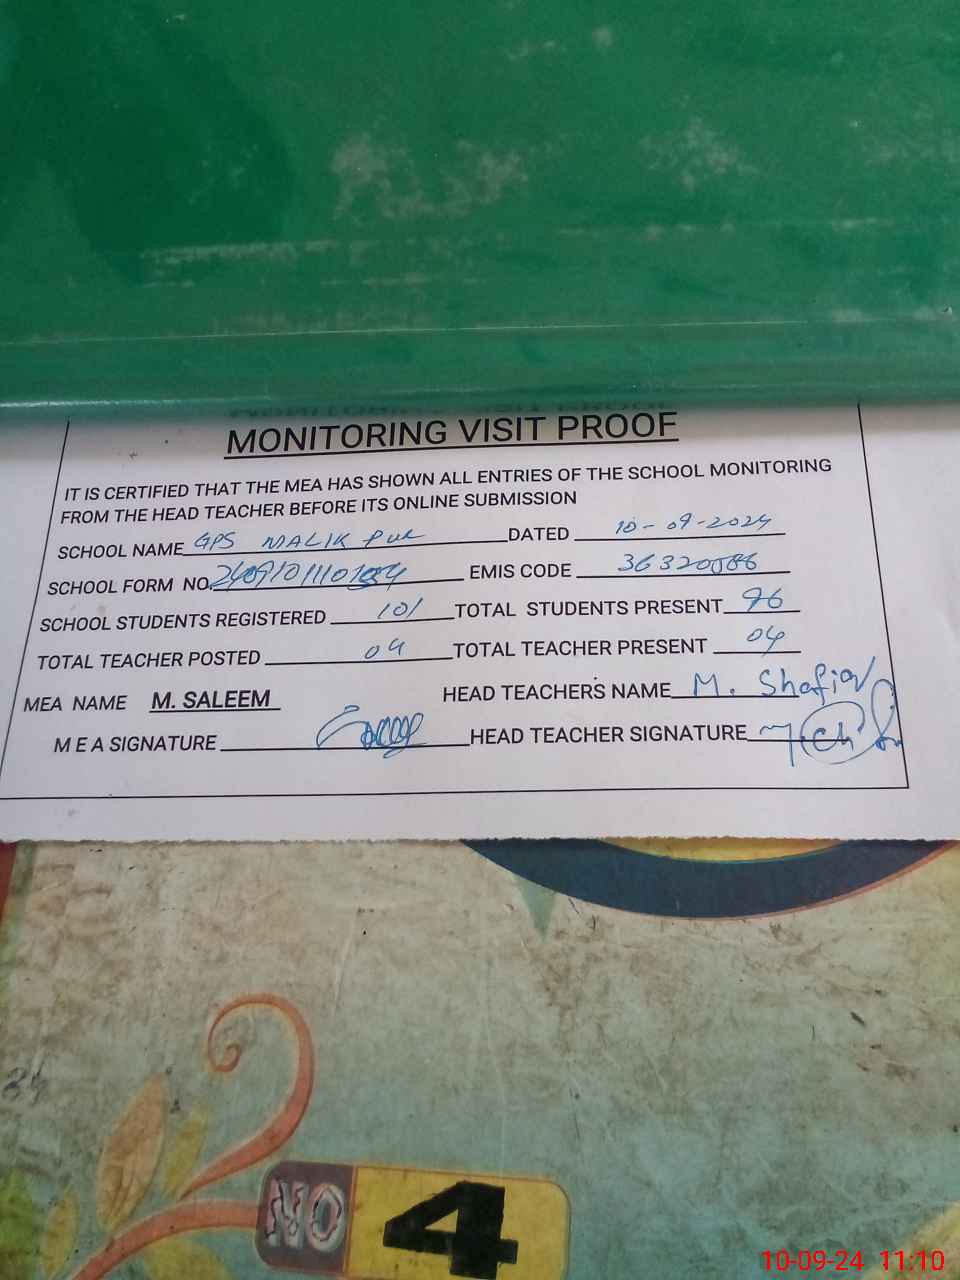 MONITORING VISIT PROOF
IT IS CERTIFIED THAT THE MEA HAS SHOWN ALL ENTRIES OF THE SCHOOL MONITORING
FROM THE HEAD TEACHER BEFORE ITS ONLINE SUBMISSION
SCHOOL NAME GPS MALIK PUR DATED 10-09-2024
SCHOOL FORM NO. EMIS CODE
SCHOOL STUDENTS REGISTERED 101 TOTAL STUDENTS PRESENT 96
TOTAL TEACHER POSTED 04 TOTAL TEACHER PRESENT 04
MEA NAME M. SALEEM HEAD TEACHERS NAME M. Shafiq
M E A SIGNATURE HEAD TEACHER SIGNATURE
NO 4
10-09-24 11:10